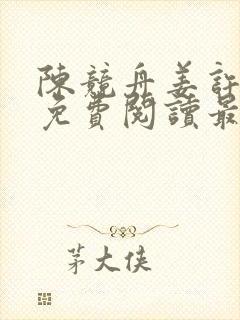 陳競舟姜訢
免費閱讀最
茅大俠